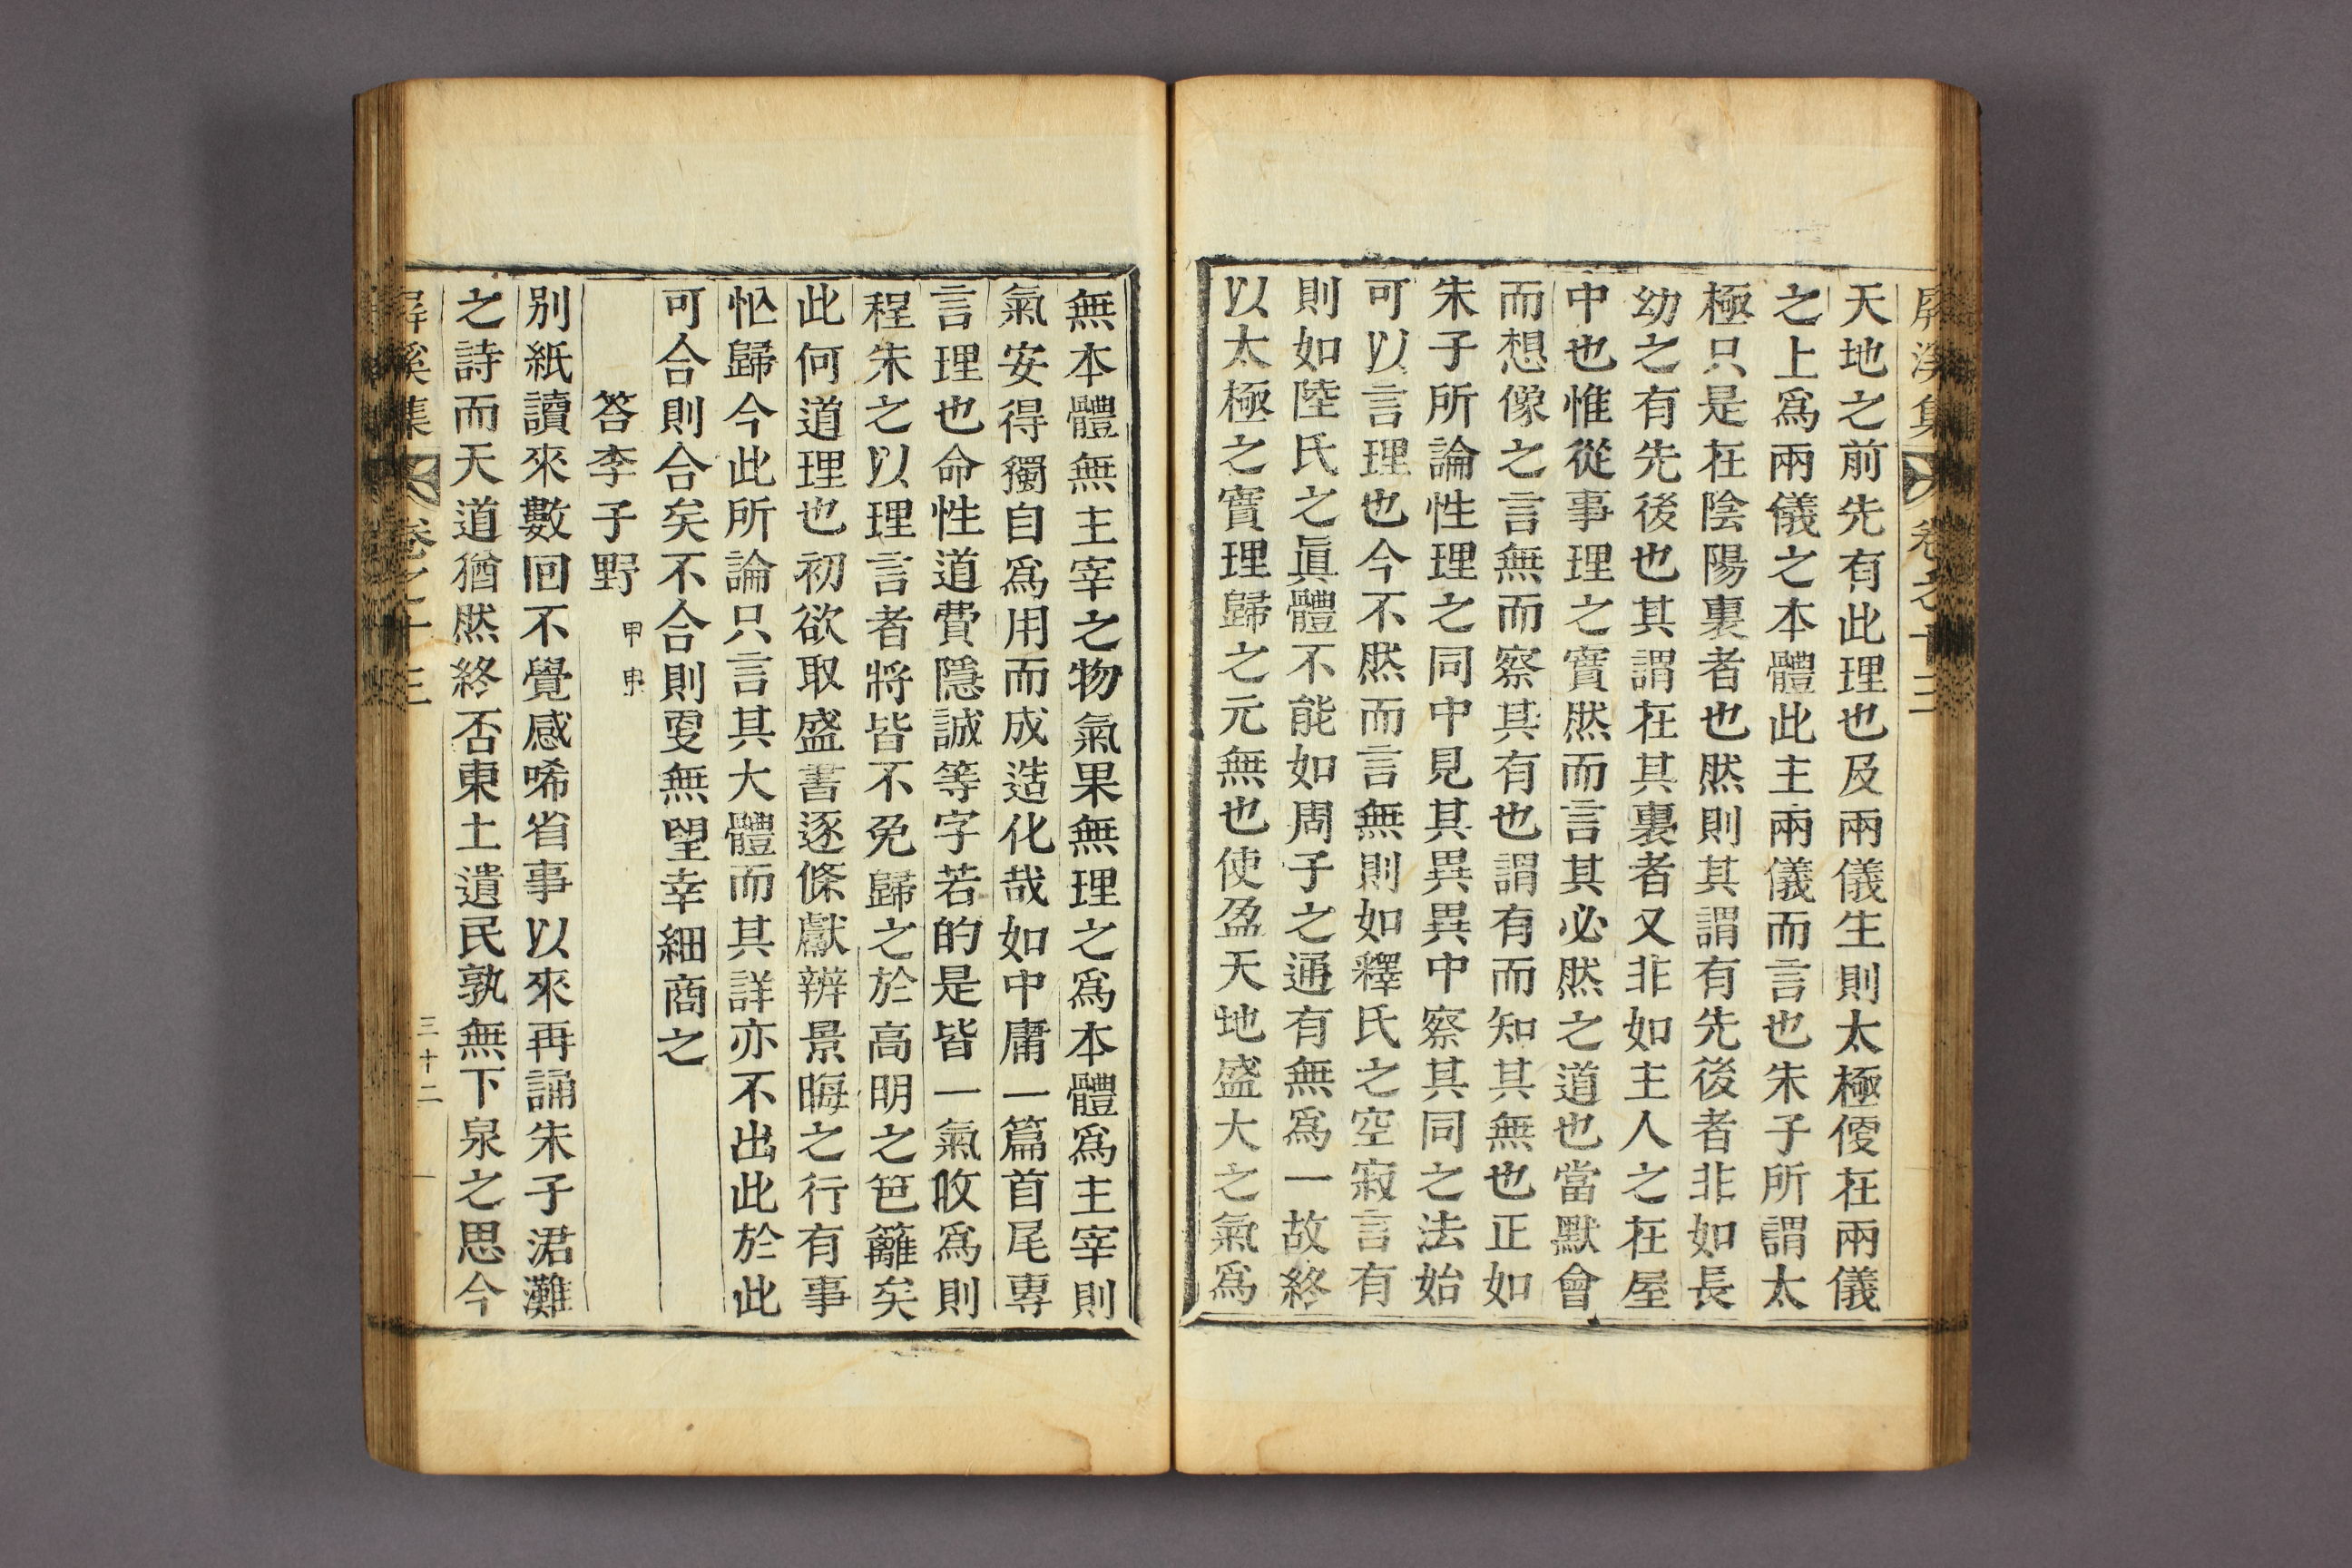 屛溪集 卷之十三
天地之前先有此理也及兩儀生則太極便在兩儀
之上爲兩儀之本體此主兩儀而言也朱子所謂太
極只是在陰陽裏者也然則其謂有先後者非如長
幼之有先後也其謂在其裏者又非如主人之在屋
中也惟從事理之實然而言其必然之道也當默會
而想像之言無而察其有也謂有而知其無也正如
朱子所論性理之同中見其異異中察其同之法始
可以言理也今不然而言無則如釋氏之空寂言有
則如陸氏之眞體不能如周子之通有無爲一故終
以太極之實理歸之元無也使盈天地盛大之氣爲
無本體無主宰之物氣果無理之爲本體爲主宰則
氣安得獨自爲用而成造化哉如中庸一篇首尾專
言理也命性道費隱誠等字若的是皆一氣收爲則
程朱之以理言者將皆不免歸之於高明之笆籬矣
此何道理也初欲取盛書逐條獻辨景晦之行有事
忙歸今此所論只言其大體而其詳亦不出此於此
可合則合矣不合則更無望幸細商之
答李子野 甲申
別紙讀來數回不覺感唏省事以來再誦朱子涒灘
之詩而天道猶然終否東土遺民孰無下泉之思今
屛溪集 卷之十三 三十二